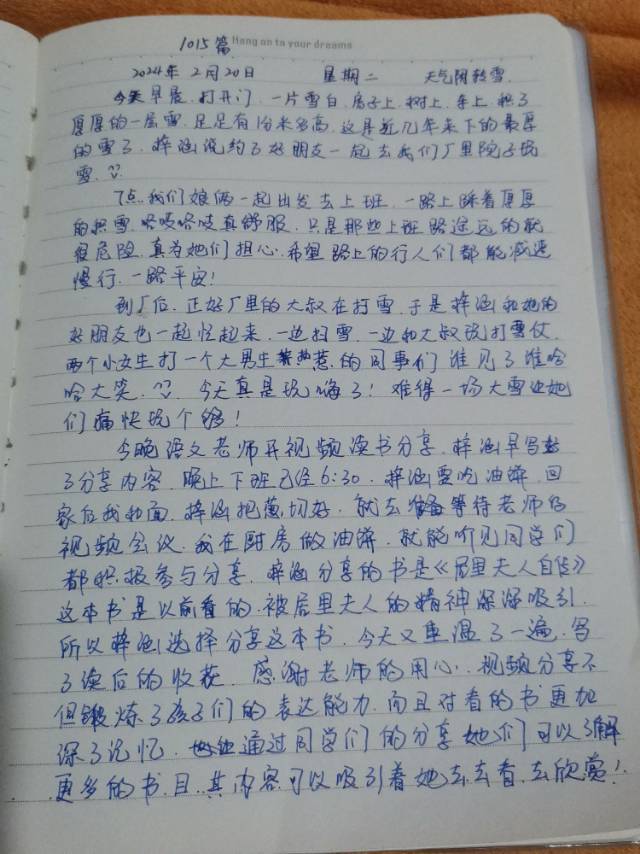 1015篇 Hang on to your dreams
2024年2月20日 星期二 天气阴转雪.
今天早晨.打开门.一片雪白.房子上.树上.车上.积了
厚厚的一层雪.足足有10分米多高.这是近几年来下的最厚
的雪了.梓涵说约了好朋友一起去我们厂里院子玩
雪.
7点.我们娘俩一起出发去上班.一路上踩着厚厚
的积雪.咯吱咯吱真舒服.只是那些上班路途远的就
很危险.真为她们担心.希望路上的行人们都能减速
慢行.一路平安!
到厂后.正好厂里的大叔在扫雪.于是梓涵和她的
好朋友也一起忙起来.一边扫雪.一边和大叔玩打雪仗.
两个小女生打一个大男生惹的同事们谁见了谁哈
哈大笑. 今天真是玩嗨了!难得一场大雪让她
们痛快玩个够!
今晚语文老师开视频读书分享.梓涵早写
了分享内容.晚上下班已经6:30.梓涵要吃油饼.回
家后我和面.梓涵把葱切好.就去准备等待老师的
视频会议.我在厨房做油饼.就能听见同学们
都积极参与分享.梓涵分享的书是《居里夫人自传》
这本书是以前看的.被居里夫人的精神深深吸引.
所以梓涵选择分享这本书.今天又重温了一遍.写
了读后的收获.感谢老师的用心.视频分享不
但锻炼了孩子们的表达能力.而且对看的书更加
深了记忆.通过同学们的分享她们可以了解
更多的书目.其内容可以吸引着她去去看.去欣赏!